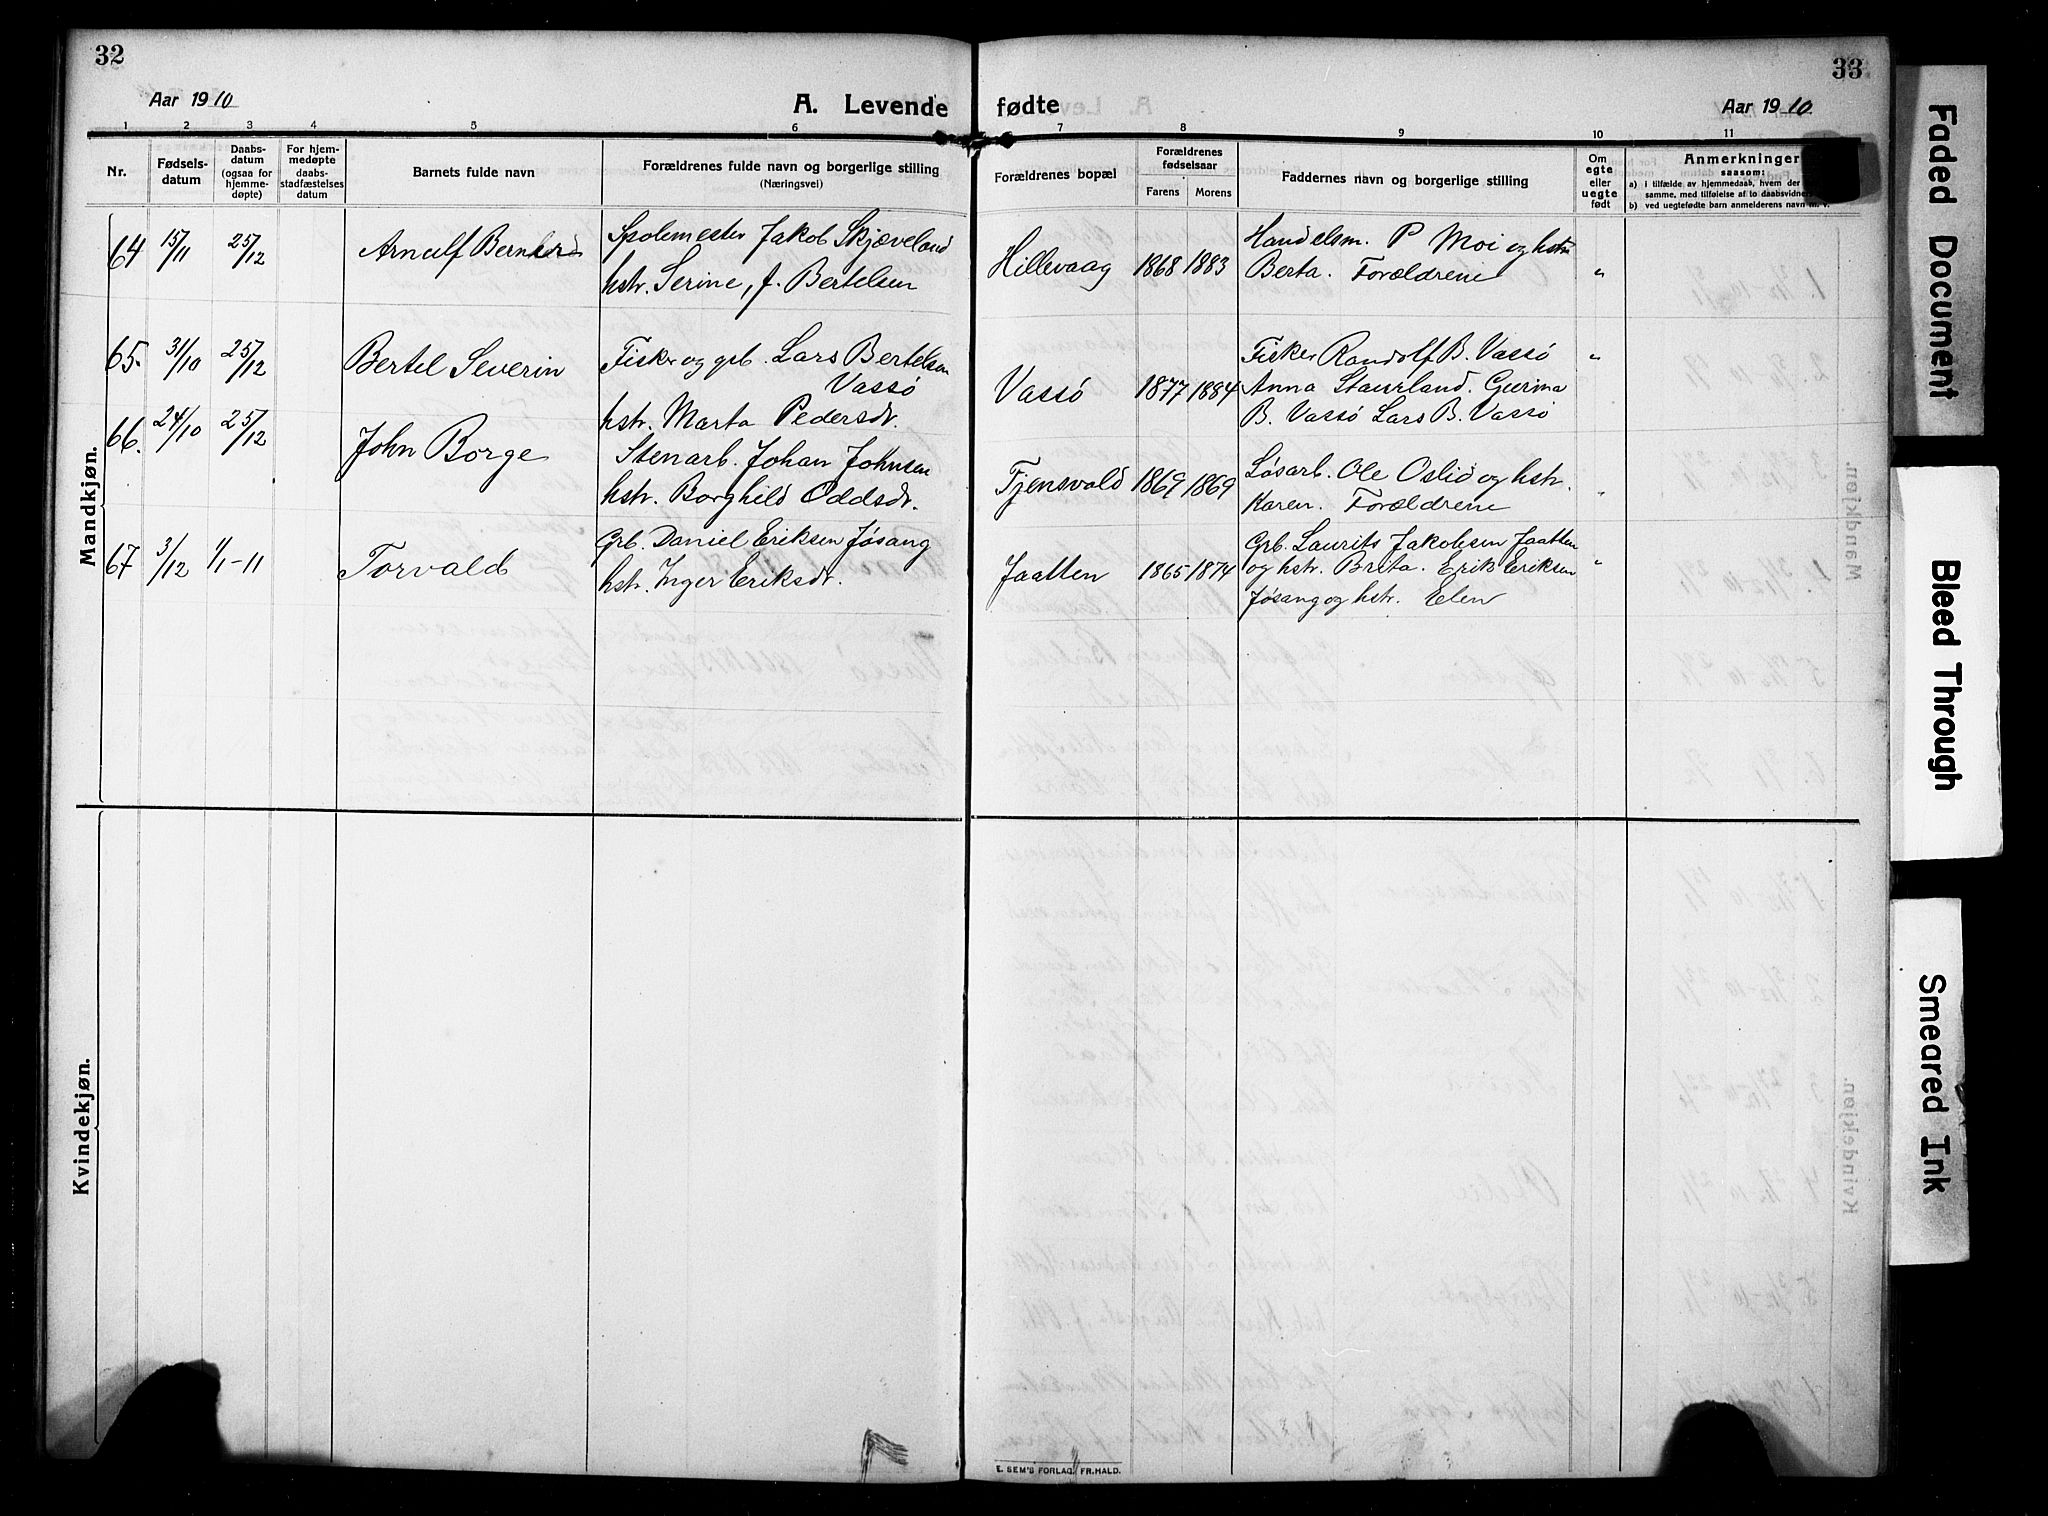 32
Aar 1910
A. Levende
1 2 3 4 5 6
Nr.
Fødsels-
datum
Daabs-
datum
(ogsaa for
hjemme-
døpte)
For hjem-
medøpte
daabs-
stadfæstelses
datum
Barnets fulde navn
Forældrenes fulde navn og borgerlige stilling
(Næringsvei)
Mandkjøn.
64 15/11 25/12 Arnulf Bernhard
Spolemester Jakob Skjæveland
hstr. Serine, f. Bertelsen
65. 31/10 25/12 Bertel Severin
Fisker og grb. Lars Bertelsen
Vassø
hstr. Marta Pedersdr.
66. 24/10 25/12 John Borge
Stenarb. Johan Johnsen
hstr. Borghild Oddsdr.
67 3/12 1/1-11 Torvald
Grb. Daniel Eriksen Jøsang
hstr. Inger Eriksdr.
Kvindekjøn.
33
fødte
Aar 1910
7 8 9 10 11
Forældrenes bopæl
Forældrenes
fødselsaar
Farens Morens
Faddernes navn og borgerlige stilling
Om
egte
eller
uegte
født
Anmerkninger
saasom:
a) i tilfælde av hjemmedaab, hvem der
samme, med tilføielse af to daabsvidne
b) ved uegtefødte barn anmelderens navn m. v.
Hillevaag 1868 1883
Handelsm. P Moi og hstr
Berta. Forældrene "
Vassø 1877 1884
Fisker Randolf B. Vassø "
Anna Staurland. Gurina
B. Vassø Lars B. Vassø
Tjensvold 1869 1869
Løsarb. Ole Oslid og hstr.
Karen. Forældrene "
Jaatten 1865 1874
Grb. Laurits Jakobsen Jaatten
og hstr. Brita. Erik Eriksen "
Jøsang og hstr. Elen
E. SEM'S FORLAG, FR.HALD.
Faded Document
Bleed Through
Smeared Ink